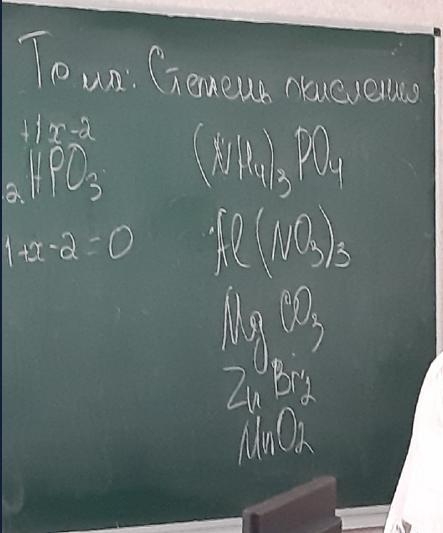 Тема: Степень окисления
+1 x -2
2 HPO3
1+x-2=0
(NH4)3 PO4
Al(NO3)3
Mg CO3
Zn Br2
MnO2